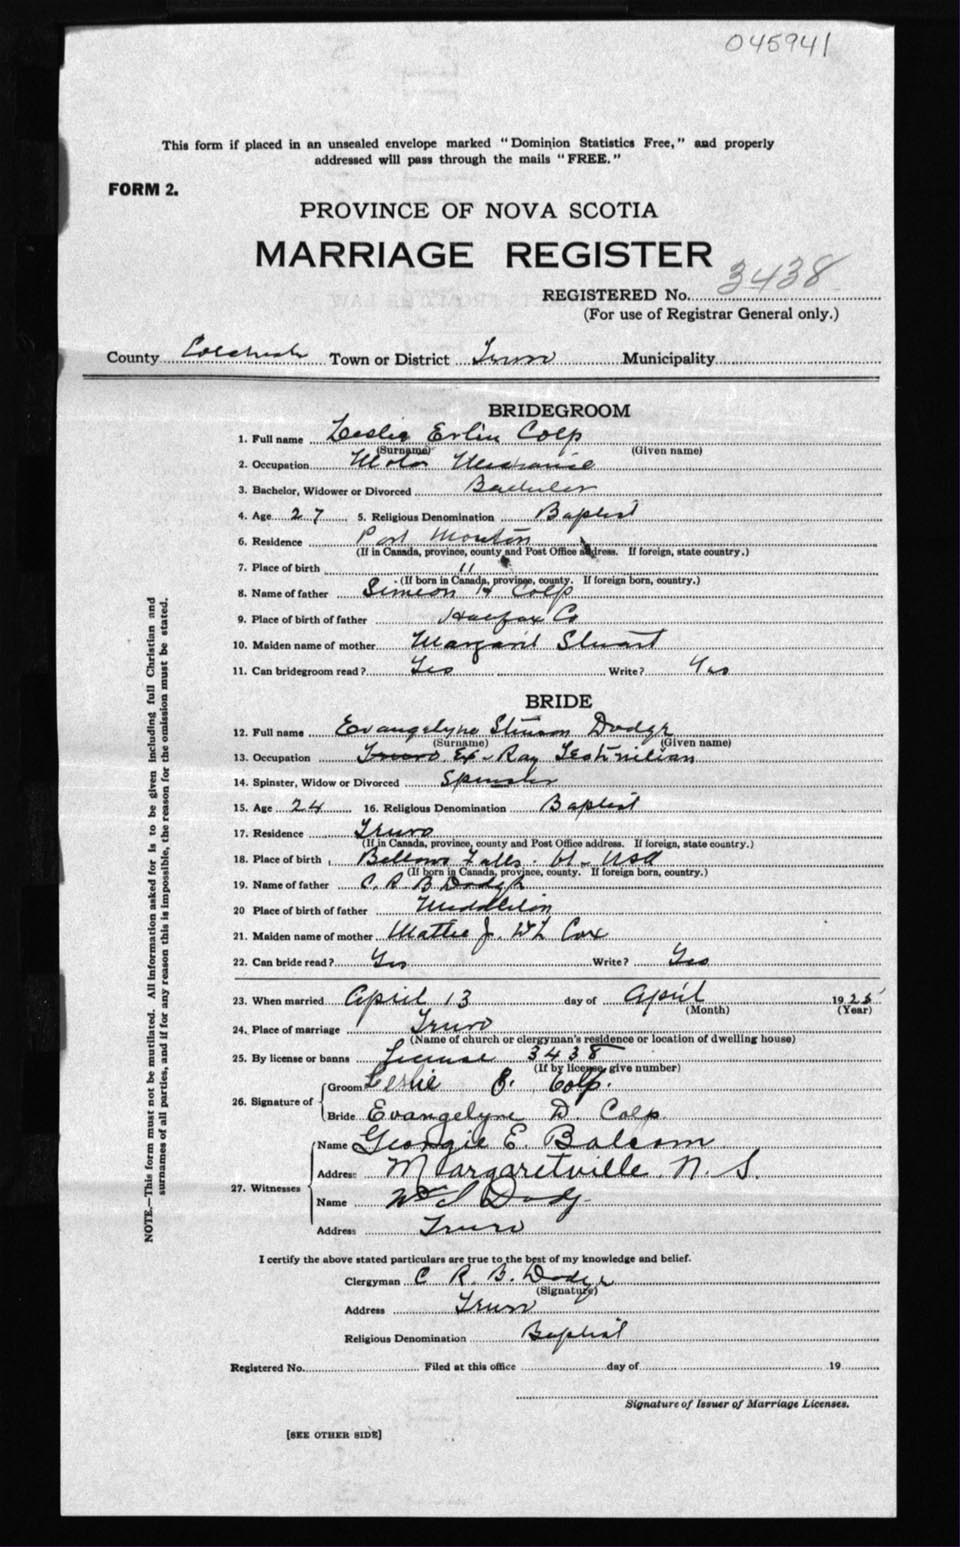 045941
This form if placed in an unsealed envelope marked "Dominion Statistics Free," and properly
addressed will pass through the mails "FREE."
FORM 2.
PROVINCE OF NOVA SCOTIA
MARRIAGE REGISTER
REGISTERED No. 3438
(For use of Registrar General only.)
County Colchester Town or District Truro Municipality
BRIDEGROOM
1. Full name Leslie Erlin Colp
(Surname) (Given name)
2. Occupation Motor Mechanic
3. Bachelor, Widower or Divorced Bachelor
4. Age 27 5. Religious Denomination Baptist
6. Residence Port Mouton
(If in Canada, province, county and Post Office address. If foreign, state country.)
7. Place of birth "
(If born in Canada, province, county. If foreign born, country.)
8. Name of father Simeon H Colp
9. Place of birth of father Halifax Co
10. Maiden name of mother Margaret Stuart
11. Can bridegroom read? Yes Write? Yes
BRIDE
12. Full name Evangelyne Stinson Dodge
(Surname) (Given name)
13. Occupation Truro Ex-Ray Teshnician
14. Spinster, Widow or Divorced Spinster
15. Age 24 16. Religious Denomination Baptist
17. Residence Truro
(If in Canada, province, county and Post Office address. If foreign, state country.)
18. Place of birth Bellows Falls. Vt- USA
(If born in Canada, province, county. If foreign born, country.)
19. Name of father C. R. B Dodge
20 Place of birth of father Middleton
21. Maiden name of mother Mattie J. Cox
22. Can bride read? Yes Write? Yes
23. When married April 13 day of April 1925
(Month) (Year)
24. Place of marriage Truro
(Name of church or clergyman's residence or location of dwelling house)
25. By license or banns License 3438
(If by license, give number)
26. Signature of Groom Leslie E. Colp.
Bride Evangelyne D. Colp
27. Witnesses Name Georgie E. Balcom
Address Margaretville N. S.
Name Wm Dodge
Address Truro
I certify the above stated particulars are true to the best of my knowledge and belief.
Clergyman C R. B. Dodge
(Signature)
Address Truro
Religious Denomination Baptist
Registered No. Filed at this office day of 19
Signature of Issuer of Marriage Licenses.
[SEE OTHER SIDE]
NOTE.—This form must not be mutilated. All information asked for is to be given including full Christian and
surnames of all parties, and if for any reason this is impossible, the reason for the omission must be stated.